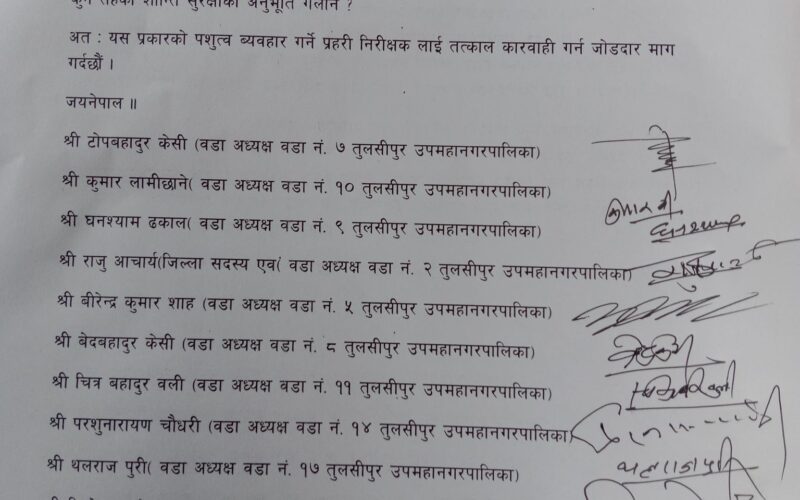 कुन तहको शान्ति सुरक्षाको अनुभूति गर्लान ?
अत : यस प्रकारको पशुत्व ब्यवहार गर्ने प्रहरी निरीक्षक लाई तत्काल कारवाही गर्न जोडदार माग
गर्दछौं ।
जयनेपाल ॥
श्री टोपबहादुर केसी (वडा अध्यक्ष वडा नं. ७ तुलसीपुर उपमहानगरपालिका)
श्री कुमार लामीछाने( वडा अध्यक्ष वडा नं. १० तुलसीपुर उपमहानगरपालिका)
श्री घनश्याम ढकाल( वडा अध्यक्ष वडा नं. ९ तुलसीपुर उपमहानगरपालिका)
श्री राजु आचार्य(जिल्ला सदस्य एवं( वडा अध्यक्ष वडा नं. २ तुलसीपुर उपमहानगरपालिका)
श्री बीरेन्द्र कुमार शाह (वडा अध्यक्ष वडा नं. ५ तुलसीपुर उपमहानगरपालिका)
श्री बेदबहादुर केसी (वडा अध्यक्ष वडा नं. ८ तुलसीपुर उपमहानगरपालिका)
श्री चित्र बहादुर वली (वडा अध्यक्ष वडा नं. ११ तुलसीपुर उपमहानगरपालिका)
श्री परशुनारायण चौधरी (वडा अध्यक्ष वडा नं. १४ तुलसीपुर उपमहानगरपालिका)
श्री थलराज पुरी( वडा अध्यक्ष वडा नं. १७ तुलसीपुर उपमहानगरपालिका)